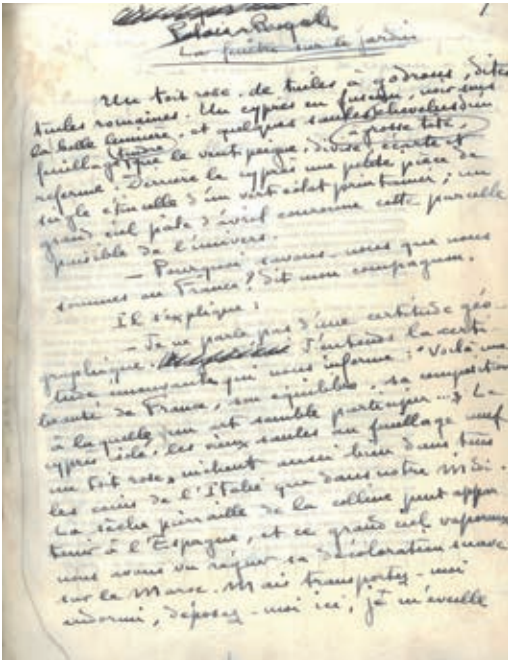 La fenêtre sur le jardin
Un toit rose, de tuiles à godrons, dites
tuiles romaines. Un cyprès en fuseau, noir sous
la belle lumière, et quelques saules chevelus d'un
feuillage tendre à grosse tête,
que le vent peigne, divise, écarte et
referme. Derrière le cyprès une petite pièce de
seigle étincelle d'un vert éclat printanier ; un
grand ciel pâle d'avril couronne cette parcelle
paisible de l'univers.
— Pourquoi savons-nous que nous
sommes en France ? dit mon compagnon.
Il s'explique :
— Je ne parle pas d'une certitude géo-
graphique. J'entends la certi-
tude émouvante qui nous informe : "Voilà une
beauté de France, son équilibre, sa composition
à laquelle un art semble participer..." Le
cyprès isolé, les vieux saules au feuillage neuf
un toit rose, nichent aussi bien dans tous
les coins de l'Italie que dans notre Midi.
La sèche pierraille de la colline peut appar-
tenir à l'Espagne, et ce grand ciel vaporeux
nous avons vu régner sa décoloration suave
sur le Maroc. Mais transportez-moi
endormi, déposez-moi ici, je m'éveille